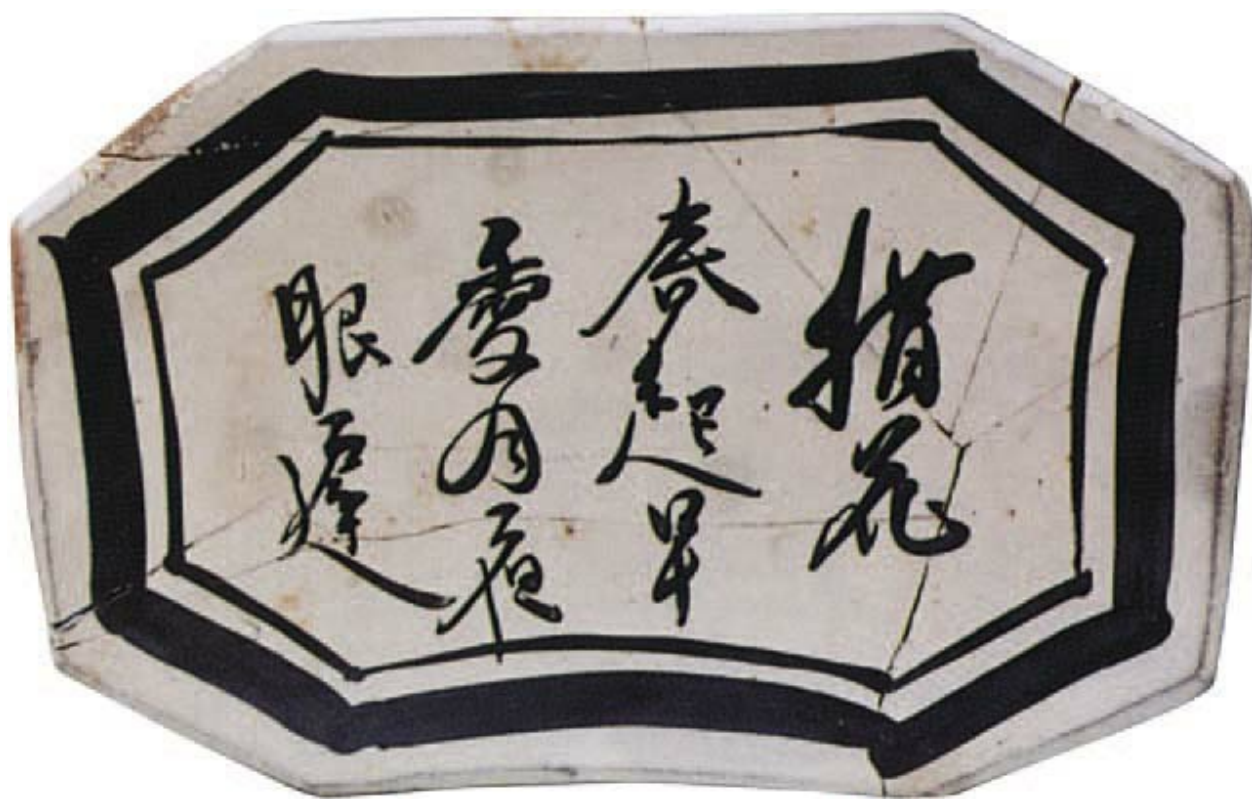 惜花
春起早
愛月夜
眠遲